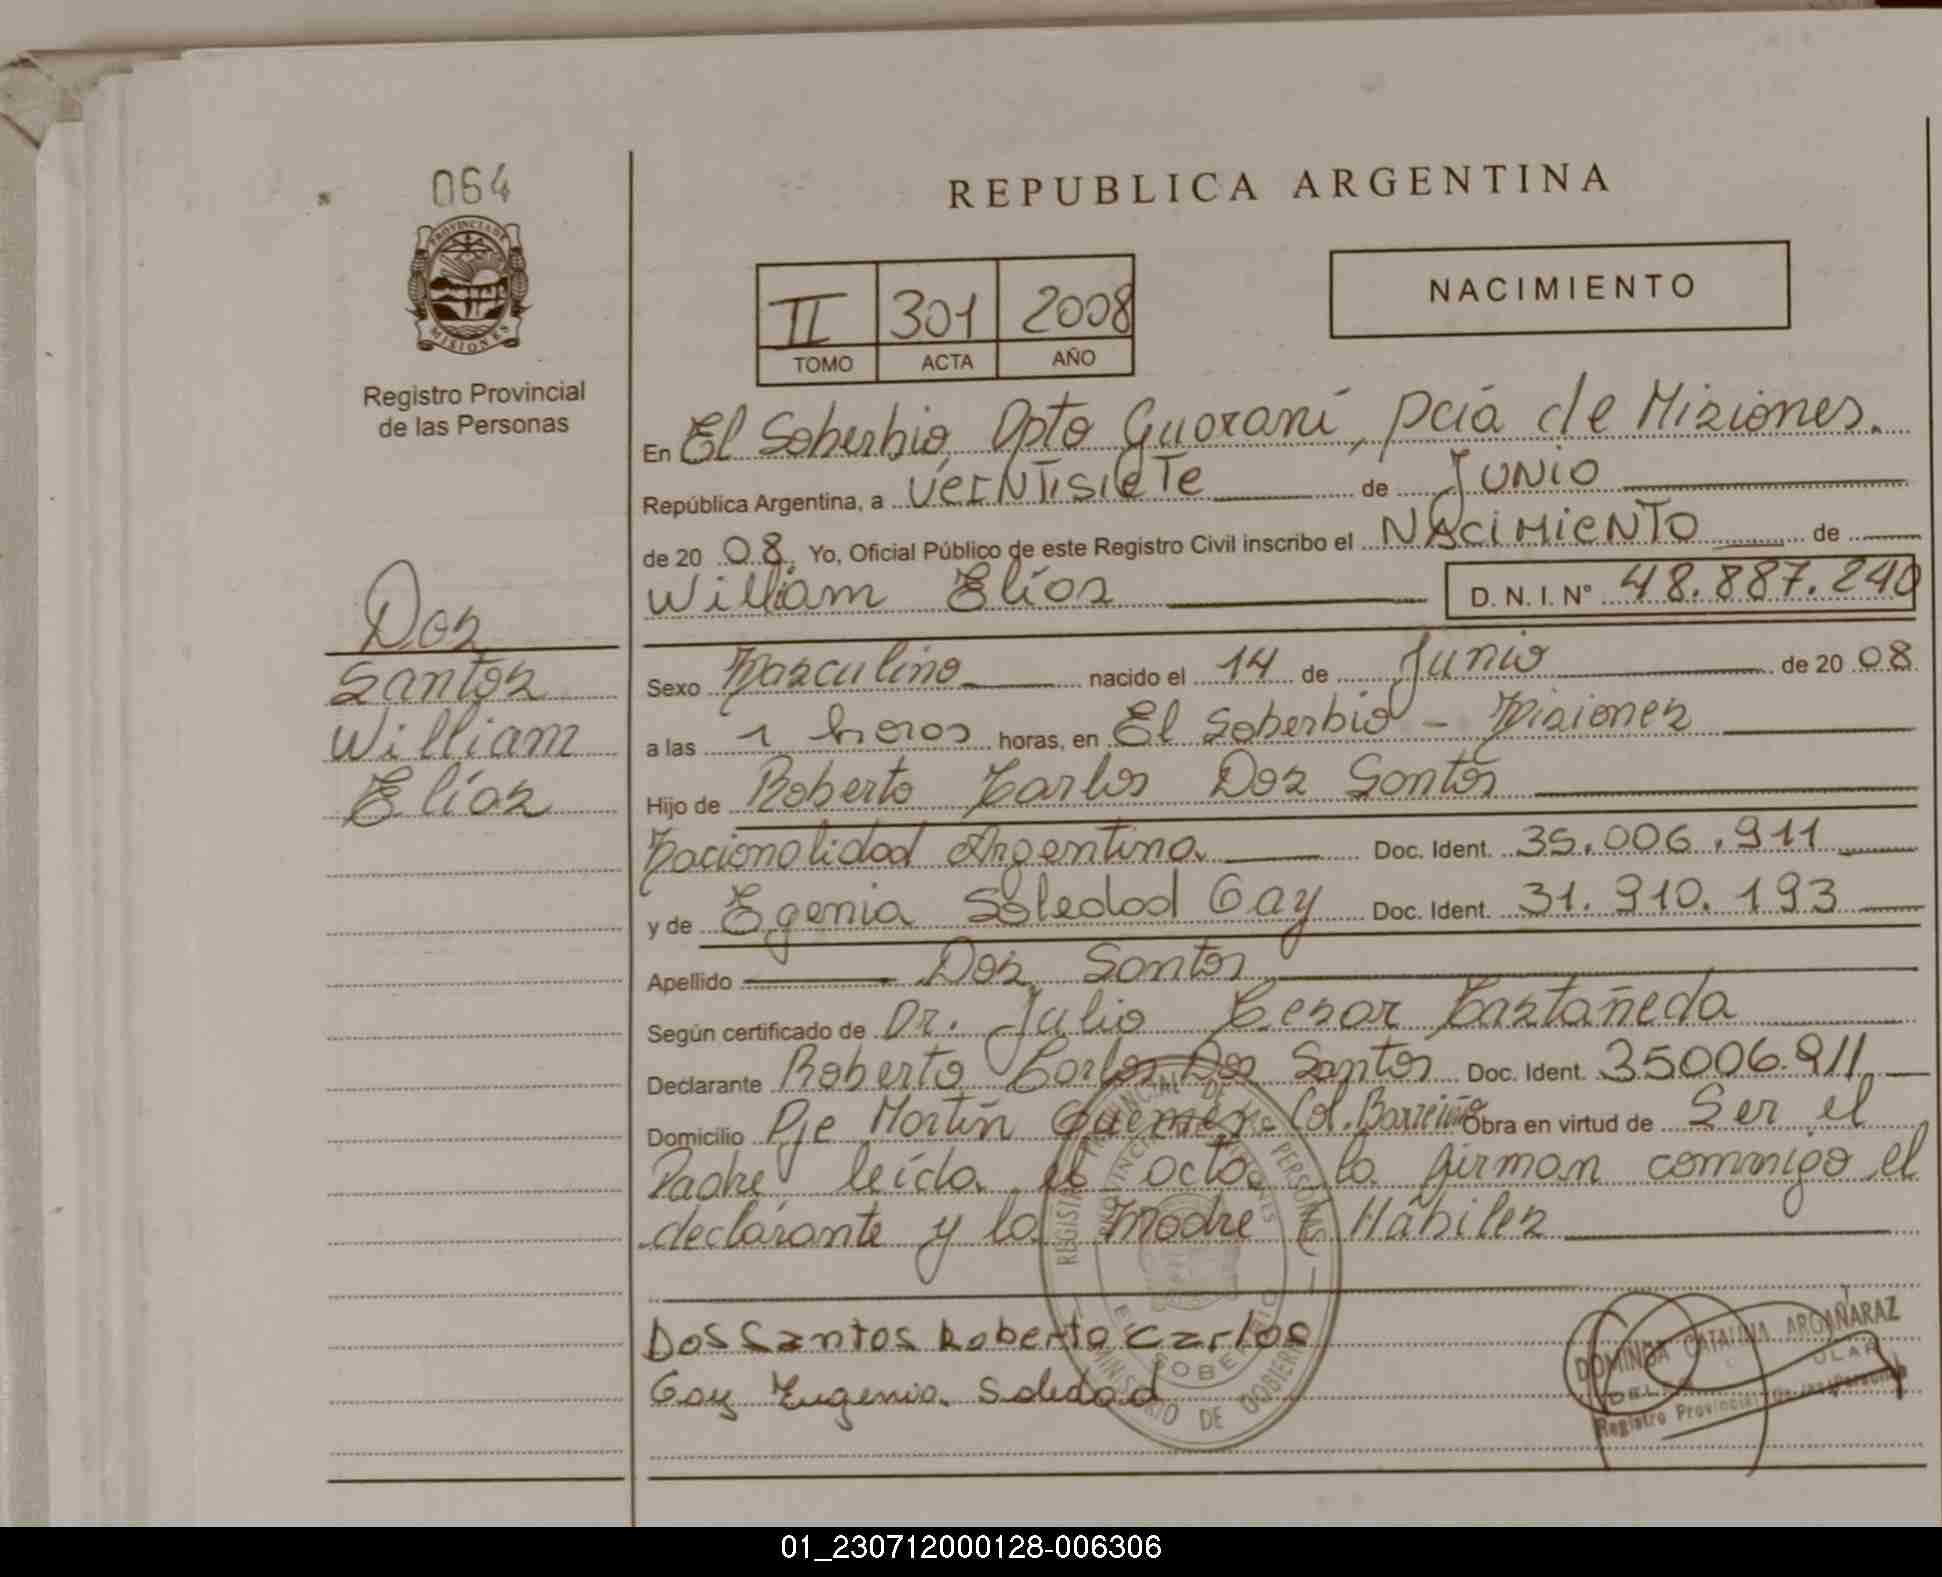 064
REPUBLICA ARGENTINA
PROVINCIA DE
MISIONES
Registro Provincial
de las Personas
II 301 2008
TOMO ACTA AÑO
NACIMIENTO
En El Soberbio, Dpto Guaraní, pcia de Misiones.
República Argentina, a veintisiete de Junio
de 20 08. Yo, Oficial Público de este Registro Civil inscribo el Nacimiento de
William Elías D. N. I. N° 48.887.240
Dos
Santos
William
Elías
Sexo Masculino nacido el 14 de Junio de 20 08
a las 1 horas horas, en El Soberbio - Misiones
Hijo de Roberto Carlos Dos Santos
Nacionalidad Argentina. Doc. Ident. 35.006.911
y de Egenia Soledad Gay Doc. Ident. 31.910.193
Apellido Dos Santos
Según certificado de Dr. Julio Cesar Castañeda
Declarante Roberto Carlos Dos Santos Doc. Ident. 35006.911
Domicilio Pje Martín Guemes. Col. Barreiro Obra en virtud de Ser el
Padre leída el acta la firman conmigo el
declarante y la madre Hábiles
Dos Santos Roberto Carlos
Gay Eugenia Soledad
REGISTRO PROVINCIAL DE LAS PERSONAS
MINISTERIO DE GOBIERNO
EL SOBERBIO
DOMINGA CATALINA ARGAÑARAZ
Registro Provincial de las Personas
01_230712000128-006306